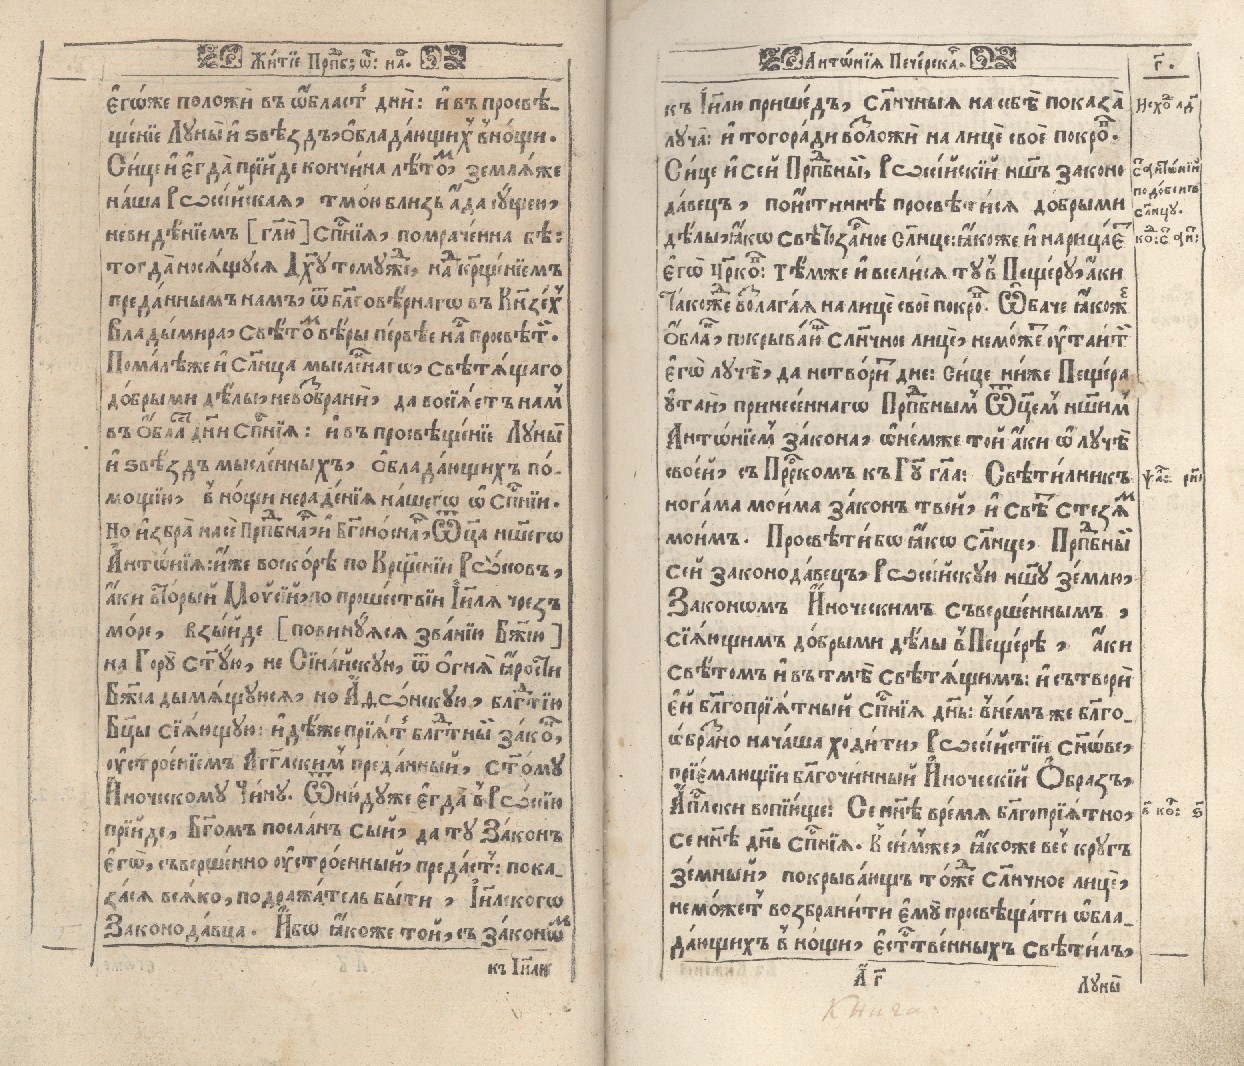 Житїе Прпб; ѿ: на.
егѡже положи въ ѡбласт дни: и въ просвѣ_
щенїе Луны и ѕвѣздъ, ѡбладающих в нощи.
Сице и егда прїйде кончина лѣтом, земля же
наша Рѡссїйская, тмою близь ада сущею,
невидѣнїемъ [глю] Спнїя, помраченна бѣ:
тогда носящуся Дху томужде, над крщенїемъ
преданнымъ намъ, ѿ блговѣрнагѡ въ Кнзех
Владымира, свѣтом вѣры первѣе нас просвѣт.
Помалѣже и Слнца мысленнагѡ, свѣтящаго
добрыми дѣлы, невозбрани, да восїяетъ нам
въ ѡблас дни Спнїя: и въ просвѣщенїе Луны
и ѕвѣздъ мысленныхъ, обладающихъ по-
мощїю, в нощи нераденїя нашегѡ ѡ Спнїи.
Но избра насе Прпбнаг, и Бгоноснаг, Ѿца ншегѡ
Антѡнїя: иже воскорѣ по Крщенїи Рѡсовъ,
аки вторый Моѵсїй, по прошествїи Іиля чрезъ
море, взыйде [повинуяся званїю Бжїю]
на Гору стую, не Сїнайскую, ѿ огня ярости
Бжїа дымящуюся, но Аѳѡнскую, блгтїю
Бцы сїяющую: идѣже прїят блгтный закон,
устроенїемъ Агглским преданный, стому
Иноческому Чину. Ѿнидуже егда в Рѡссїю
прїйде, Бгомъ посланъ сый, да ту Законъ
егѡ, съвершенно устроенный, предаст: пока_
зася всяко, подражатель быти, Іилскогѡ
Законодавца. Ибѡ якоже той, съ закѡном
къ Іилю
Антѡнїя Печерска.
г.
къ Іилю пришедъ, Слнчныя на себѣ показа
луча: и тогоради возложи на лице свое покров.
Сице и сей Прпбный, Рѡссїйскїй ншъ законо
давецъ, поистиннѣ просвѣтися добрыми
дѣлы, якѡ свѣтозарное Слнце: якоже и нарицает
егѡ Црков: Тѣмже и вселися ту в Пещеру, аки
такожде возлагая на лице свое покров. Ѡбаче якоже
ѡблак, покрываю Слнчное лице, неможет утаит
егѡ лучѣ, да нетворит дне: Сице ниже Пещера
утаи, принесеннагѡ Прпбным Ѿцем ншим
Антѡнїем закона, ѡнемже той аки ѡ лучѣ
своей, съ Пррком къ Гду гла: Свѣтилникъ
ногама моима законъ твой, и свѣт стезям
моимъ. Просвѣти бѡ якѡ Слнце, Прпбный
сей законодавецъ, Рѡссїйскую ншу землю,
Законѡмъ Иноческимъ съвершеннымъ,
сїяющимъ добрыми дѣлы в Пещерѣ, аки
свѣтомъ и въ тмѣ свѣтящимъ: и сътвори
ей блгопрїятный Спнїя днь: внемъ же блго_
ѡбразно начаша ходити, Рѡссїйстїи снѡве,
прїемлющїи блгочинный Иноческїй Образъ,
Апслски вопїюще: Се ннѣ время блгопрїятно,
се ннѣ днь Спнїя. К симже, якоже весь кругъ
земный, покрывающъ тожде Слнчное лице,
неможет возбранити ему просвѣщати ѡбла_
дающихъ в нощи, естственныхъ свѣтилъ,
Исход лд
С антѡнїй
подобенъ
слнцу.
в кор: ѕ
А г
Луны
Книга